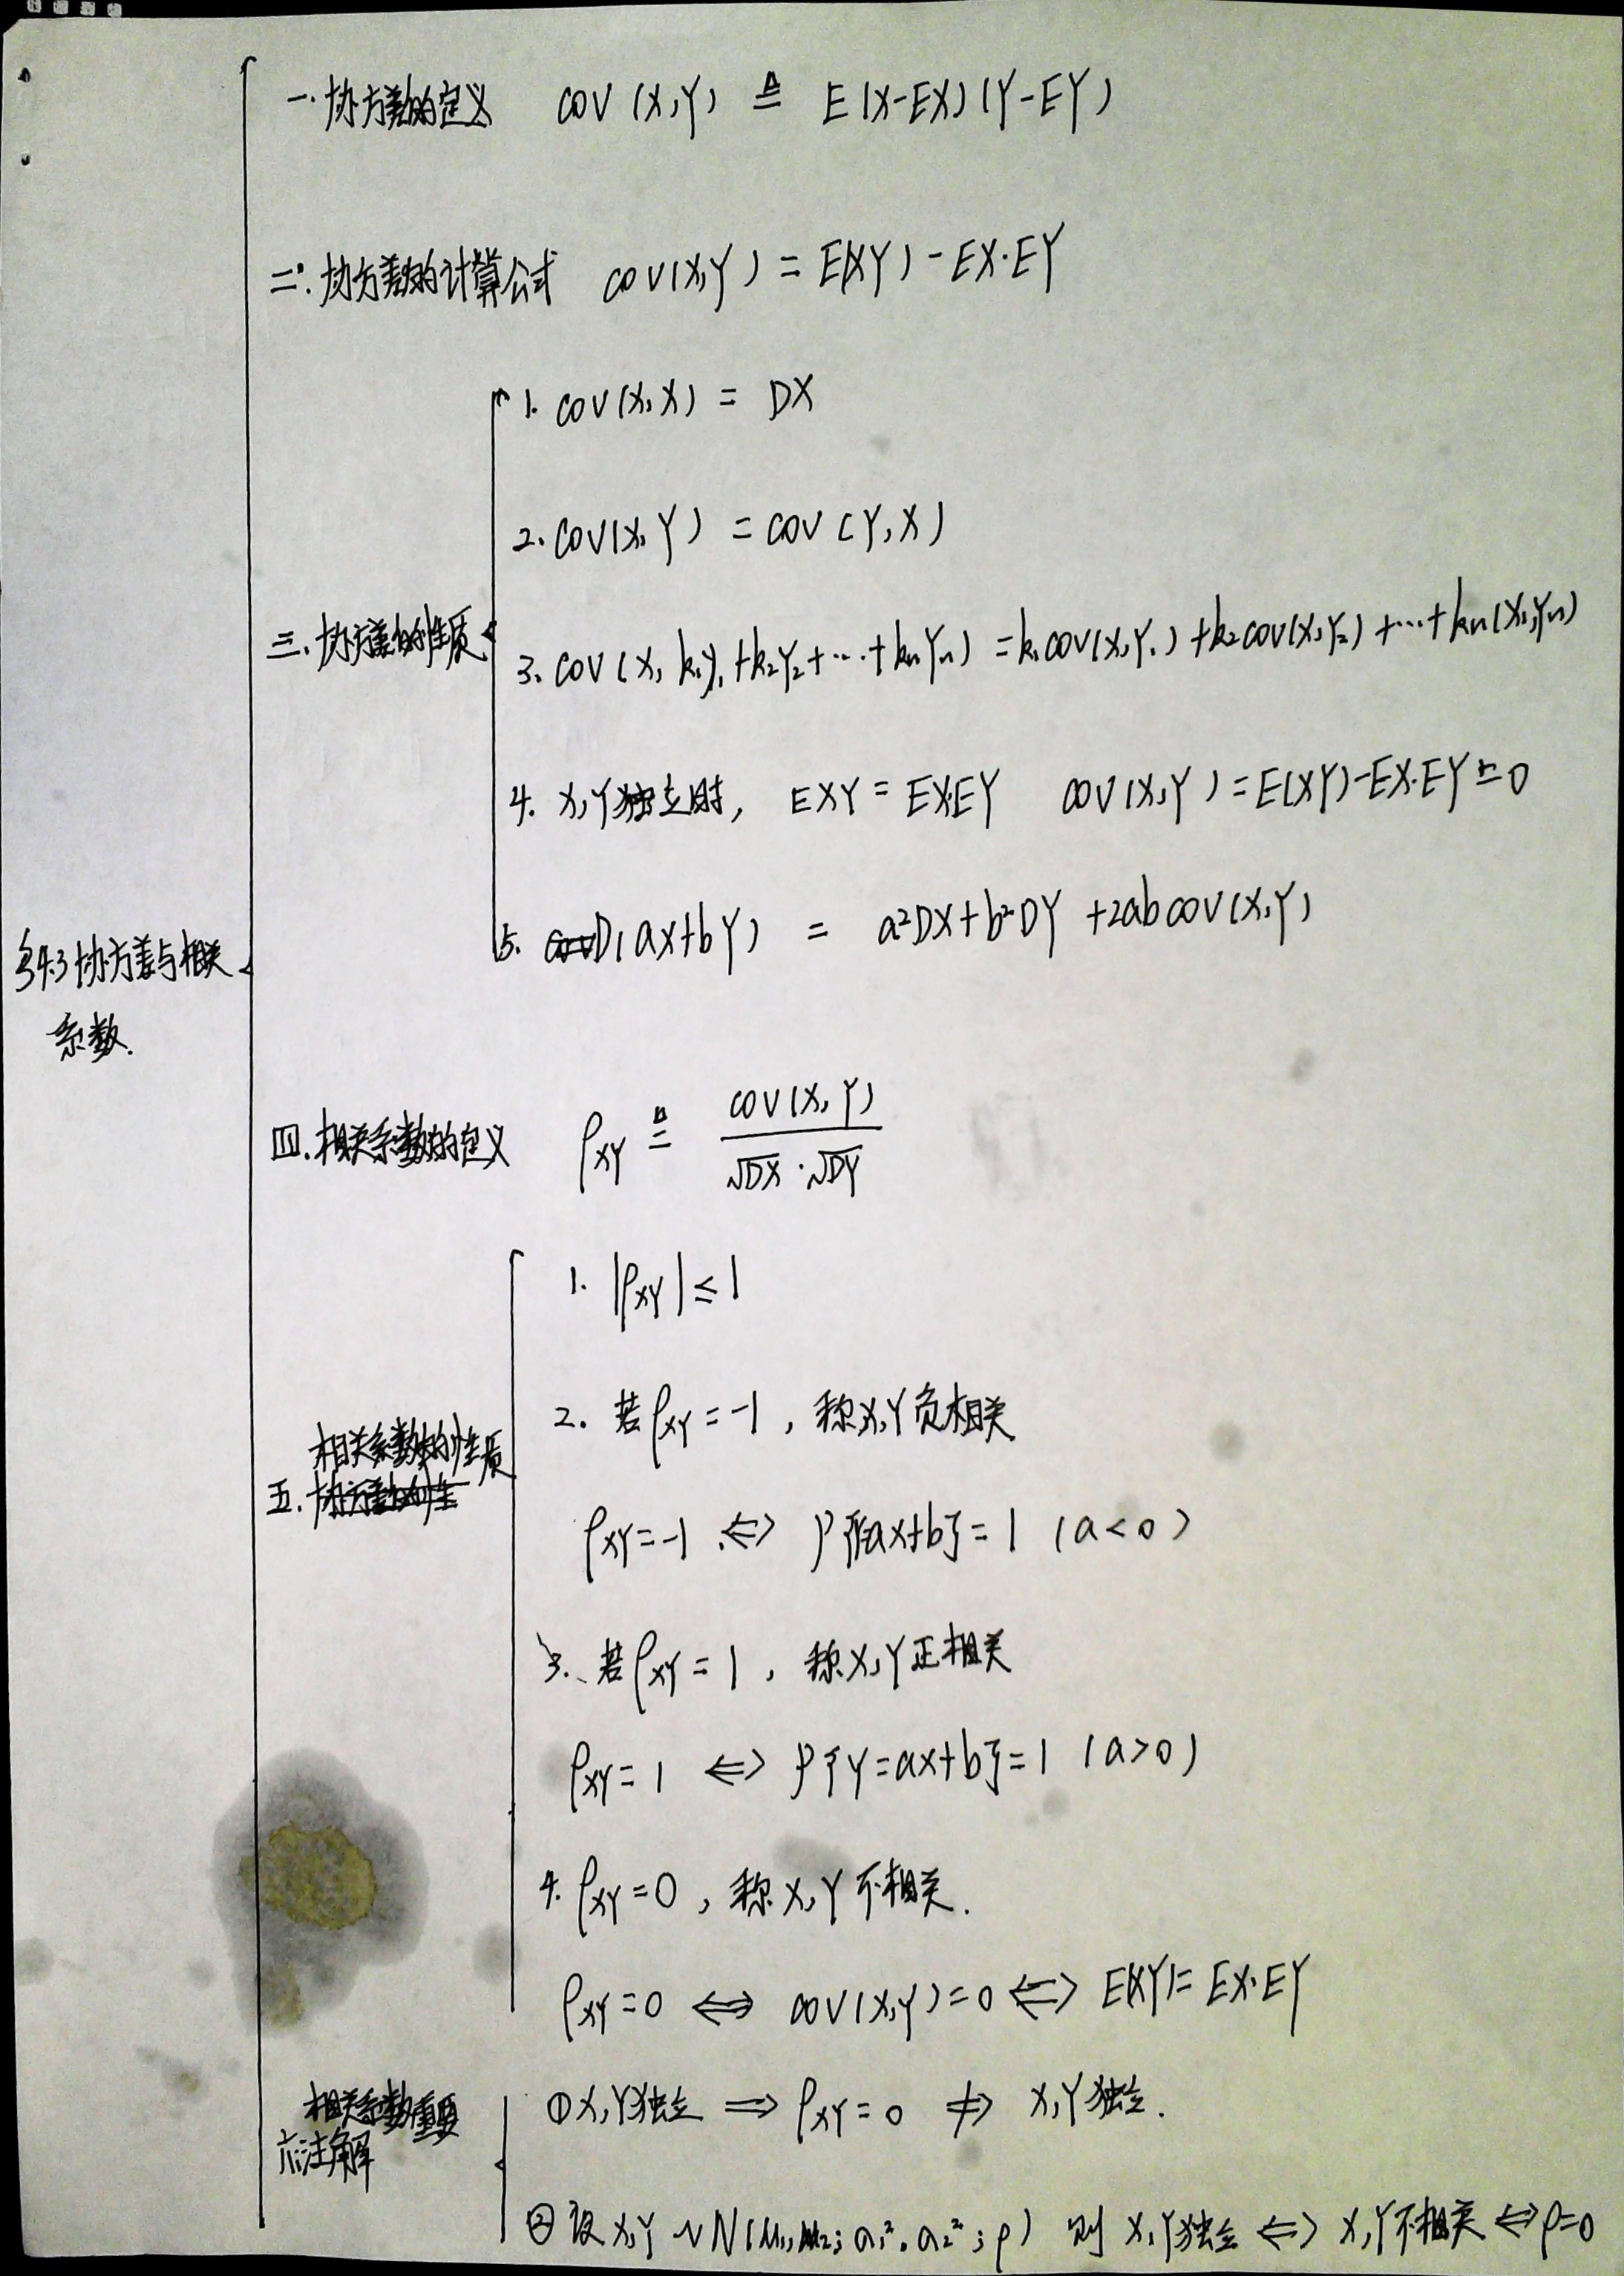 §4.3 协方差与相关
系数.
一. 协方差的定义 COV(X,Y) ≜ E(X-EX)(Y-EY)
二. 协方差的计算公式 COV(X,Y) = E(XY) - EX·EY
三. 协方差的性质
1. COV(X,X) = DX
2. COV(X,Y) = COV(Y,X)
3. COV(X, k₁Y₁+k₂Y₂+⋯+kₙYₙ) = k₁COV(X,Y₁)+k₂COV(X,Y₂)+⋯+kₙ(X,Yₙ)
4. X,Y独立时, EXY = EX·EY COV(X,Y) = E(XY)-EX·EY = 0
5. D(aX+bY) = a²DX+b²DY+2abCOV(X,Y)
四. 相关系数的定义 ρXY ≜ COV(X,Y) / √DX·√DY
五. 相关系数的性质
1. |ρXY| ≤ 1
2. 若ρXY = -1, 称X,Y负相关
ρXY = -1 ⇔ P{Y=aX+b} = 1 (a<0)
3. 若ρXY = 1, 称X,Y正相关
ρXY = 1 ⇔ P{Y=aX+b} = 1 (a>0)
4. ρXY = 0, 称X,Y不相关.
ρXY = 0 ⇔ COV(X,Y) = 0 ⇔ E(XY) = EX·EY
六. 相关系数重要
注解
① X,Y独立 ⇒ ρXY = 0 ⇏ X,Y独立.
② 设X,Y ~ N(μ₁,μ₂; σ₁², σ₂²; ρ) 则 X,Y独立 ⇔ X,Y不相关 ⇔ ρ=0